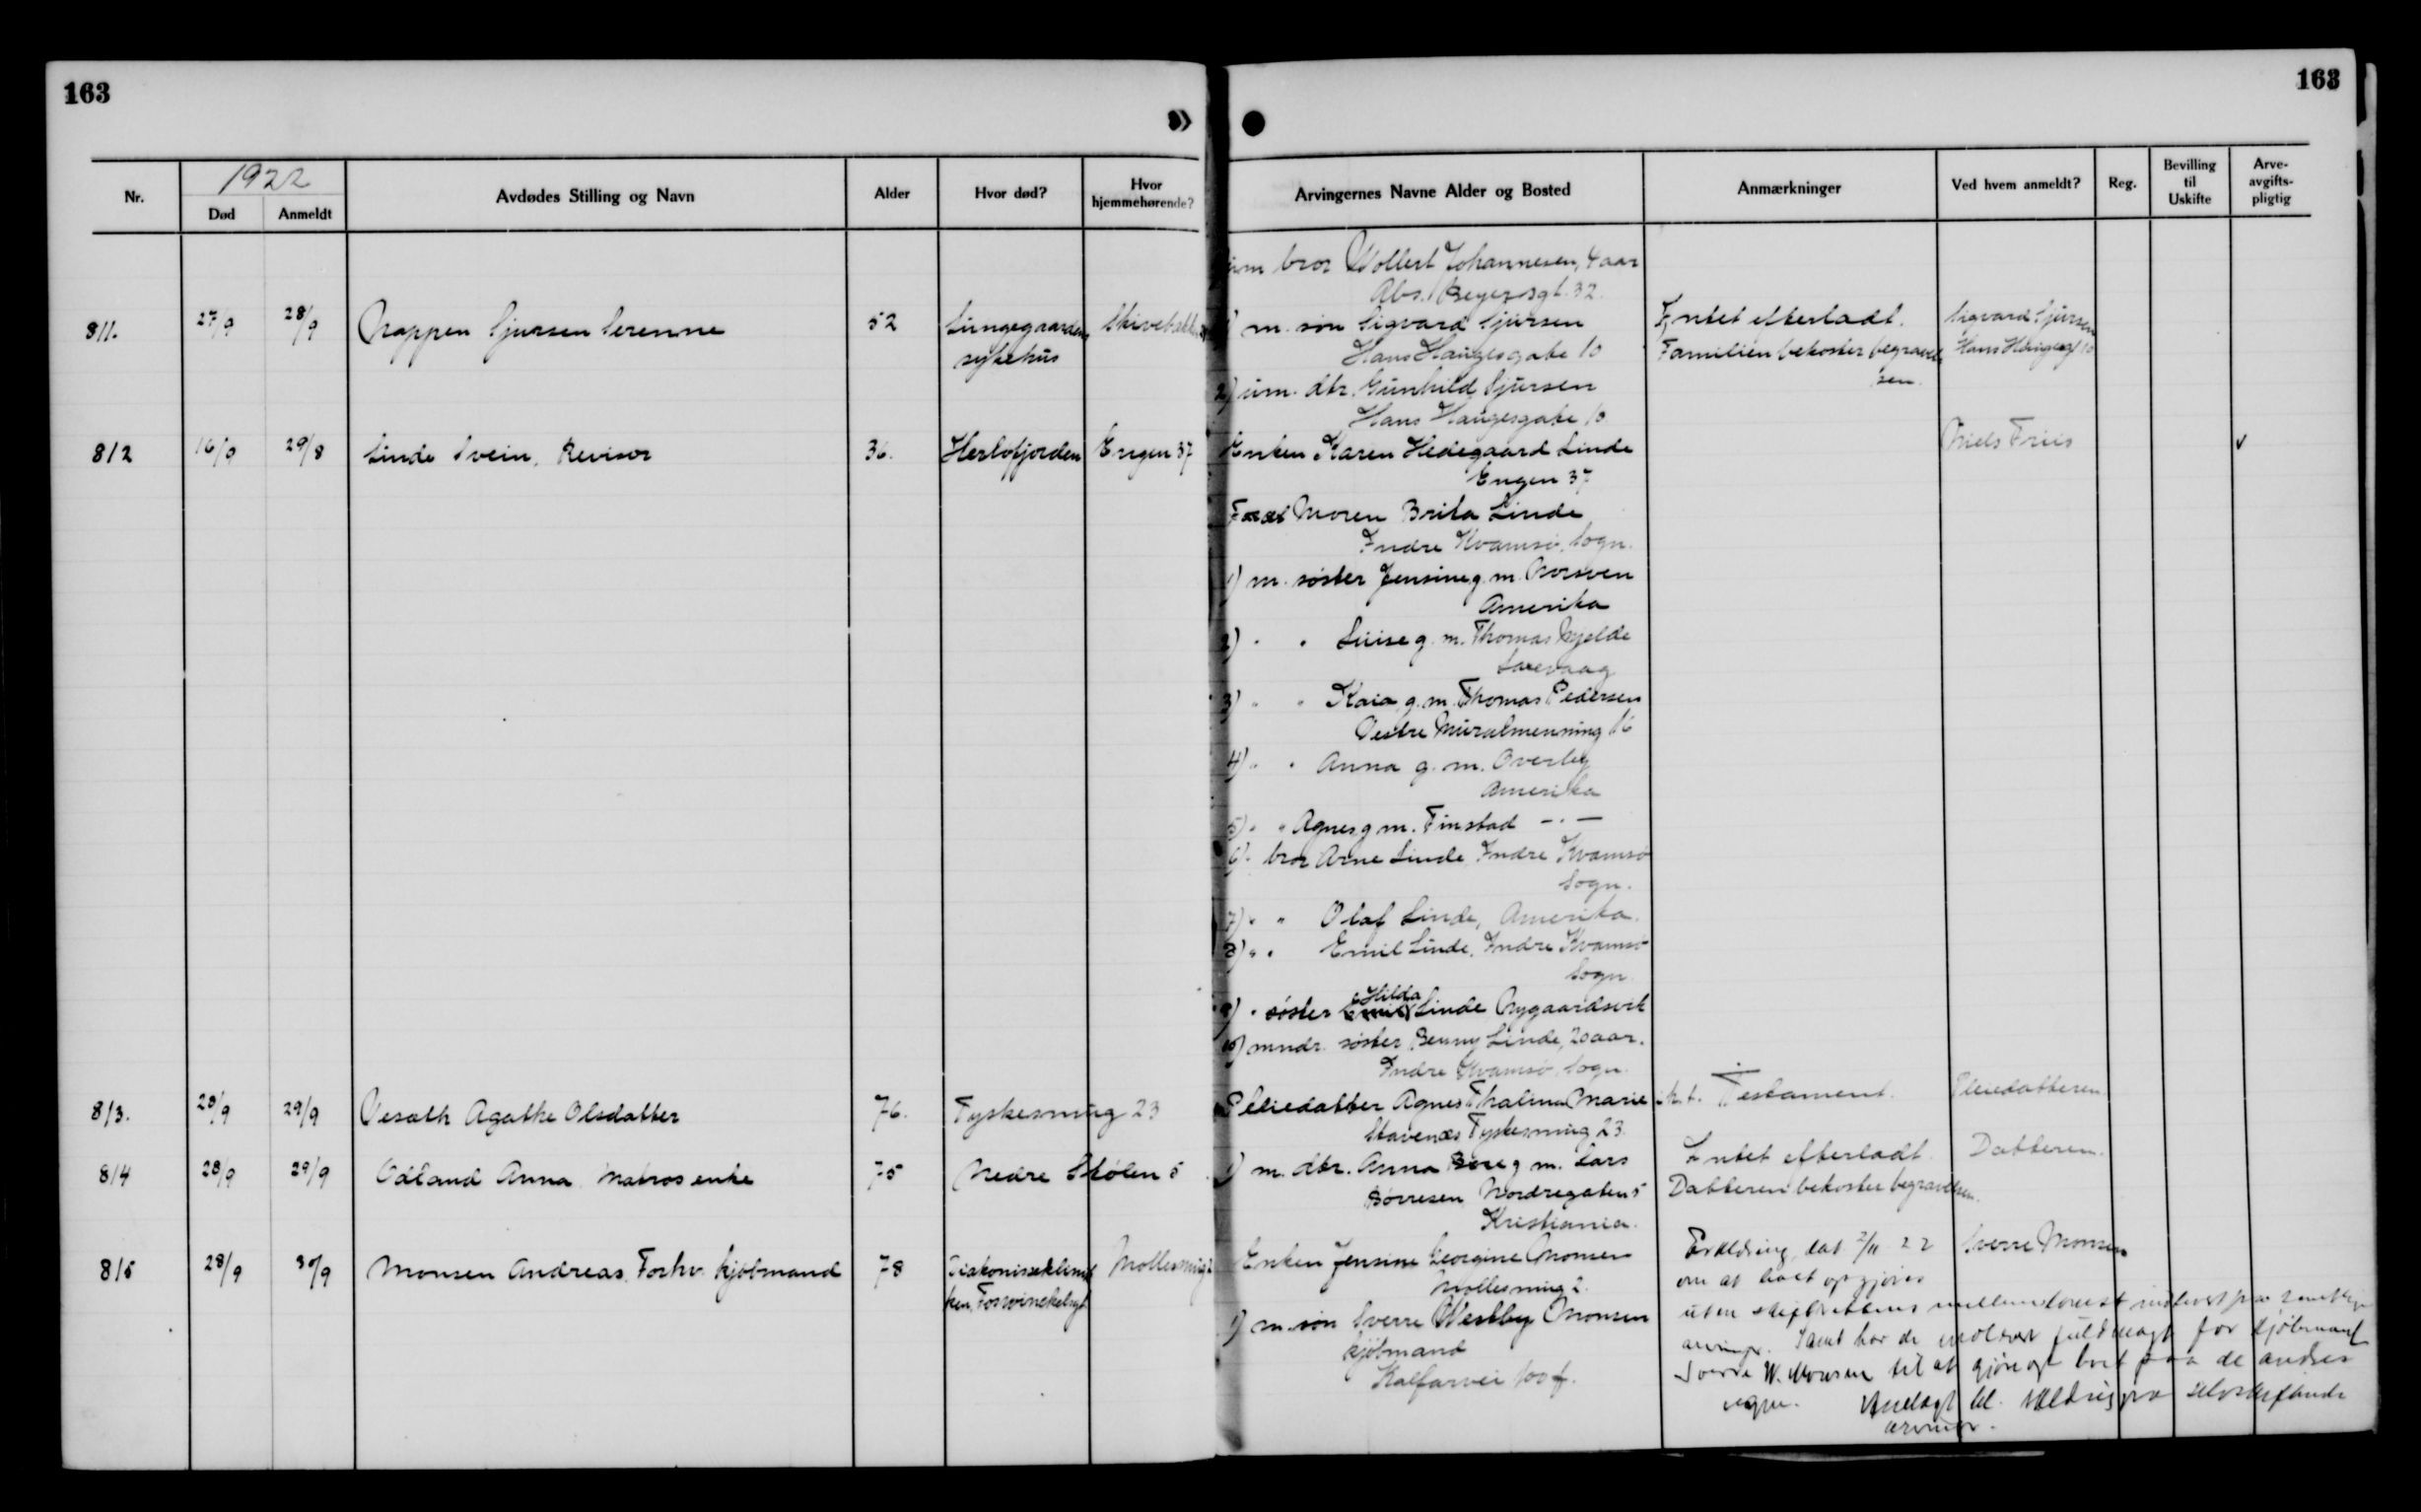 163
163
1922
Nr.
Død
Anmeldt
Avdødes Stilling og Navn
Alder
Hvor død?
Hvor
hjemmehørende?
Arvingernes Navne Alder og Bosted
Anmærkninger
Ved hvem anmeldt?
Reg.
Bevilling
til
Uskifte
Arve-
avgifts-
pligtig
um bror Wollert Johannesen, 4 aar
Abs. Beyersgt. 32.
811. 27/9 28/9 Nappen Sjursen Serenne 52 Lungegaardens sykehus
1) m. søn Sigvard Sjursen
Hans Haugesgate 10
2) um. dtr. Gunhild Sjursen
Hans Haugesgate 10
Intet efterladt.
Familien bekoster begravelsen.
Sigvard Sjursen
Hans Haugesgt 10
812 16/9 29/8 Linde Svein, Revisor 36. Herløfjorden Engen 37
Enken Karen Hedegaard Linde
Engen 37
Moren Brita Linde
Indre Kvamsø, Sogn.
1) m. søster Jensine g. m.
Amerika
2) " " Luise g. m. Thomas Mjelde
Larevaag
3) " " Kaia g. m. Thomas Pedersen
Vestre Muralmenning 16
4) " " Anna g. m. Overby
Amerika
5) " " Agnes g m. Finstad — " —
6) " bror Arne Linde Indre Kvamsø
Sogn.
7) " " Olaf Linde, Amerika.
8) " " Emil Linde, Indre Kvamsø
Sogn.
9) " søster Hilda Linde Nygaardsvik
10) mndr. søster Benny Linde, 20 aar.
Indre Kvamsø, Sogn.
Niels Friis
✓
813. 28/9 29/9 Vesath Agathe Olsdatter 76. Tyskesmug 23
Pleiedatter Agnes Thalina Marie
Stavenæs Tyskesmug 23.
i h. t. Testament.
Pleiedatteren
814 28/9 29/9 Odland Anna Matros enke 75 Nedre Stølen 5
1) m. dtr. Anna g m. Lars
Børresen Nordregaten 5
Kristiania.
Intet efterladt.
Datteren bekoster begravelsen.
Datteren.
815 28/9 30/9 Monsen Andreas, Forhv. kjøbmand 78 Diakonisseklinikken, Fosswinckelsgt Mollesmug 2
Enken Jensine Georgine Monsen
Mollesmug 2.
1) m. søn Sverre Westby Monsen
kjøbmand
Kalfarvei 100 f.
Erklæring dat 2/11 22
om at boet opgjøres
uten skifterettens mellemkomst indlevert fra samtlige
arvinger. Samt har de meddelt fuldmagt for kjøbmand
Sverre W. Monsen til at gjøre op boet paa de andres
vegne.
arvinger.
Sverre Monsen